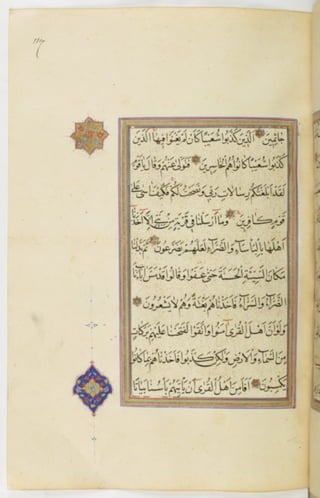 ١١٧
جاثمين الذين كذبوا شعيبا كان لم يغنوا فيها الذين
كذبوا شعيبا كانوا هم الخاسرين فتولى عنهم وقال يا قوم
لقد ابلغتكم رسالات ربي ونصحت لكم فكيف آسى على
قوم كافرين وما ارسلنا في قرية من نبي الا اخذنا
اهلها بالباساء والضراء لعلهم يضرعون ثم بدلنا
مكان السيئة الحسنة حتى عفوا وقالوا قد مس آباءنا
الضراء والسراء فاخذناهم بغتة وهم لا يشعرون
ولو ان اهل القرى آمنوا واتقوا لفتحنا عليهم بركات
من السماء والارض ولكن كذبوا فاخذناهم بما كانوا
يكسبون افامن اهل القرى ان ياتيهم باسنا بياتا